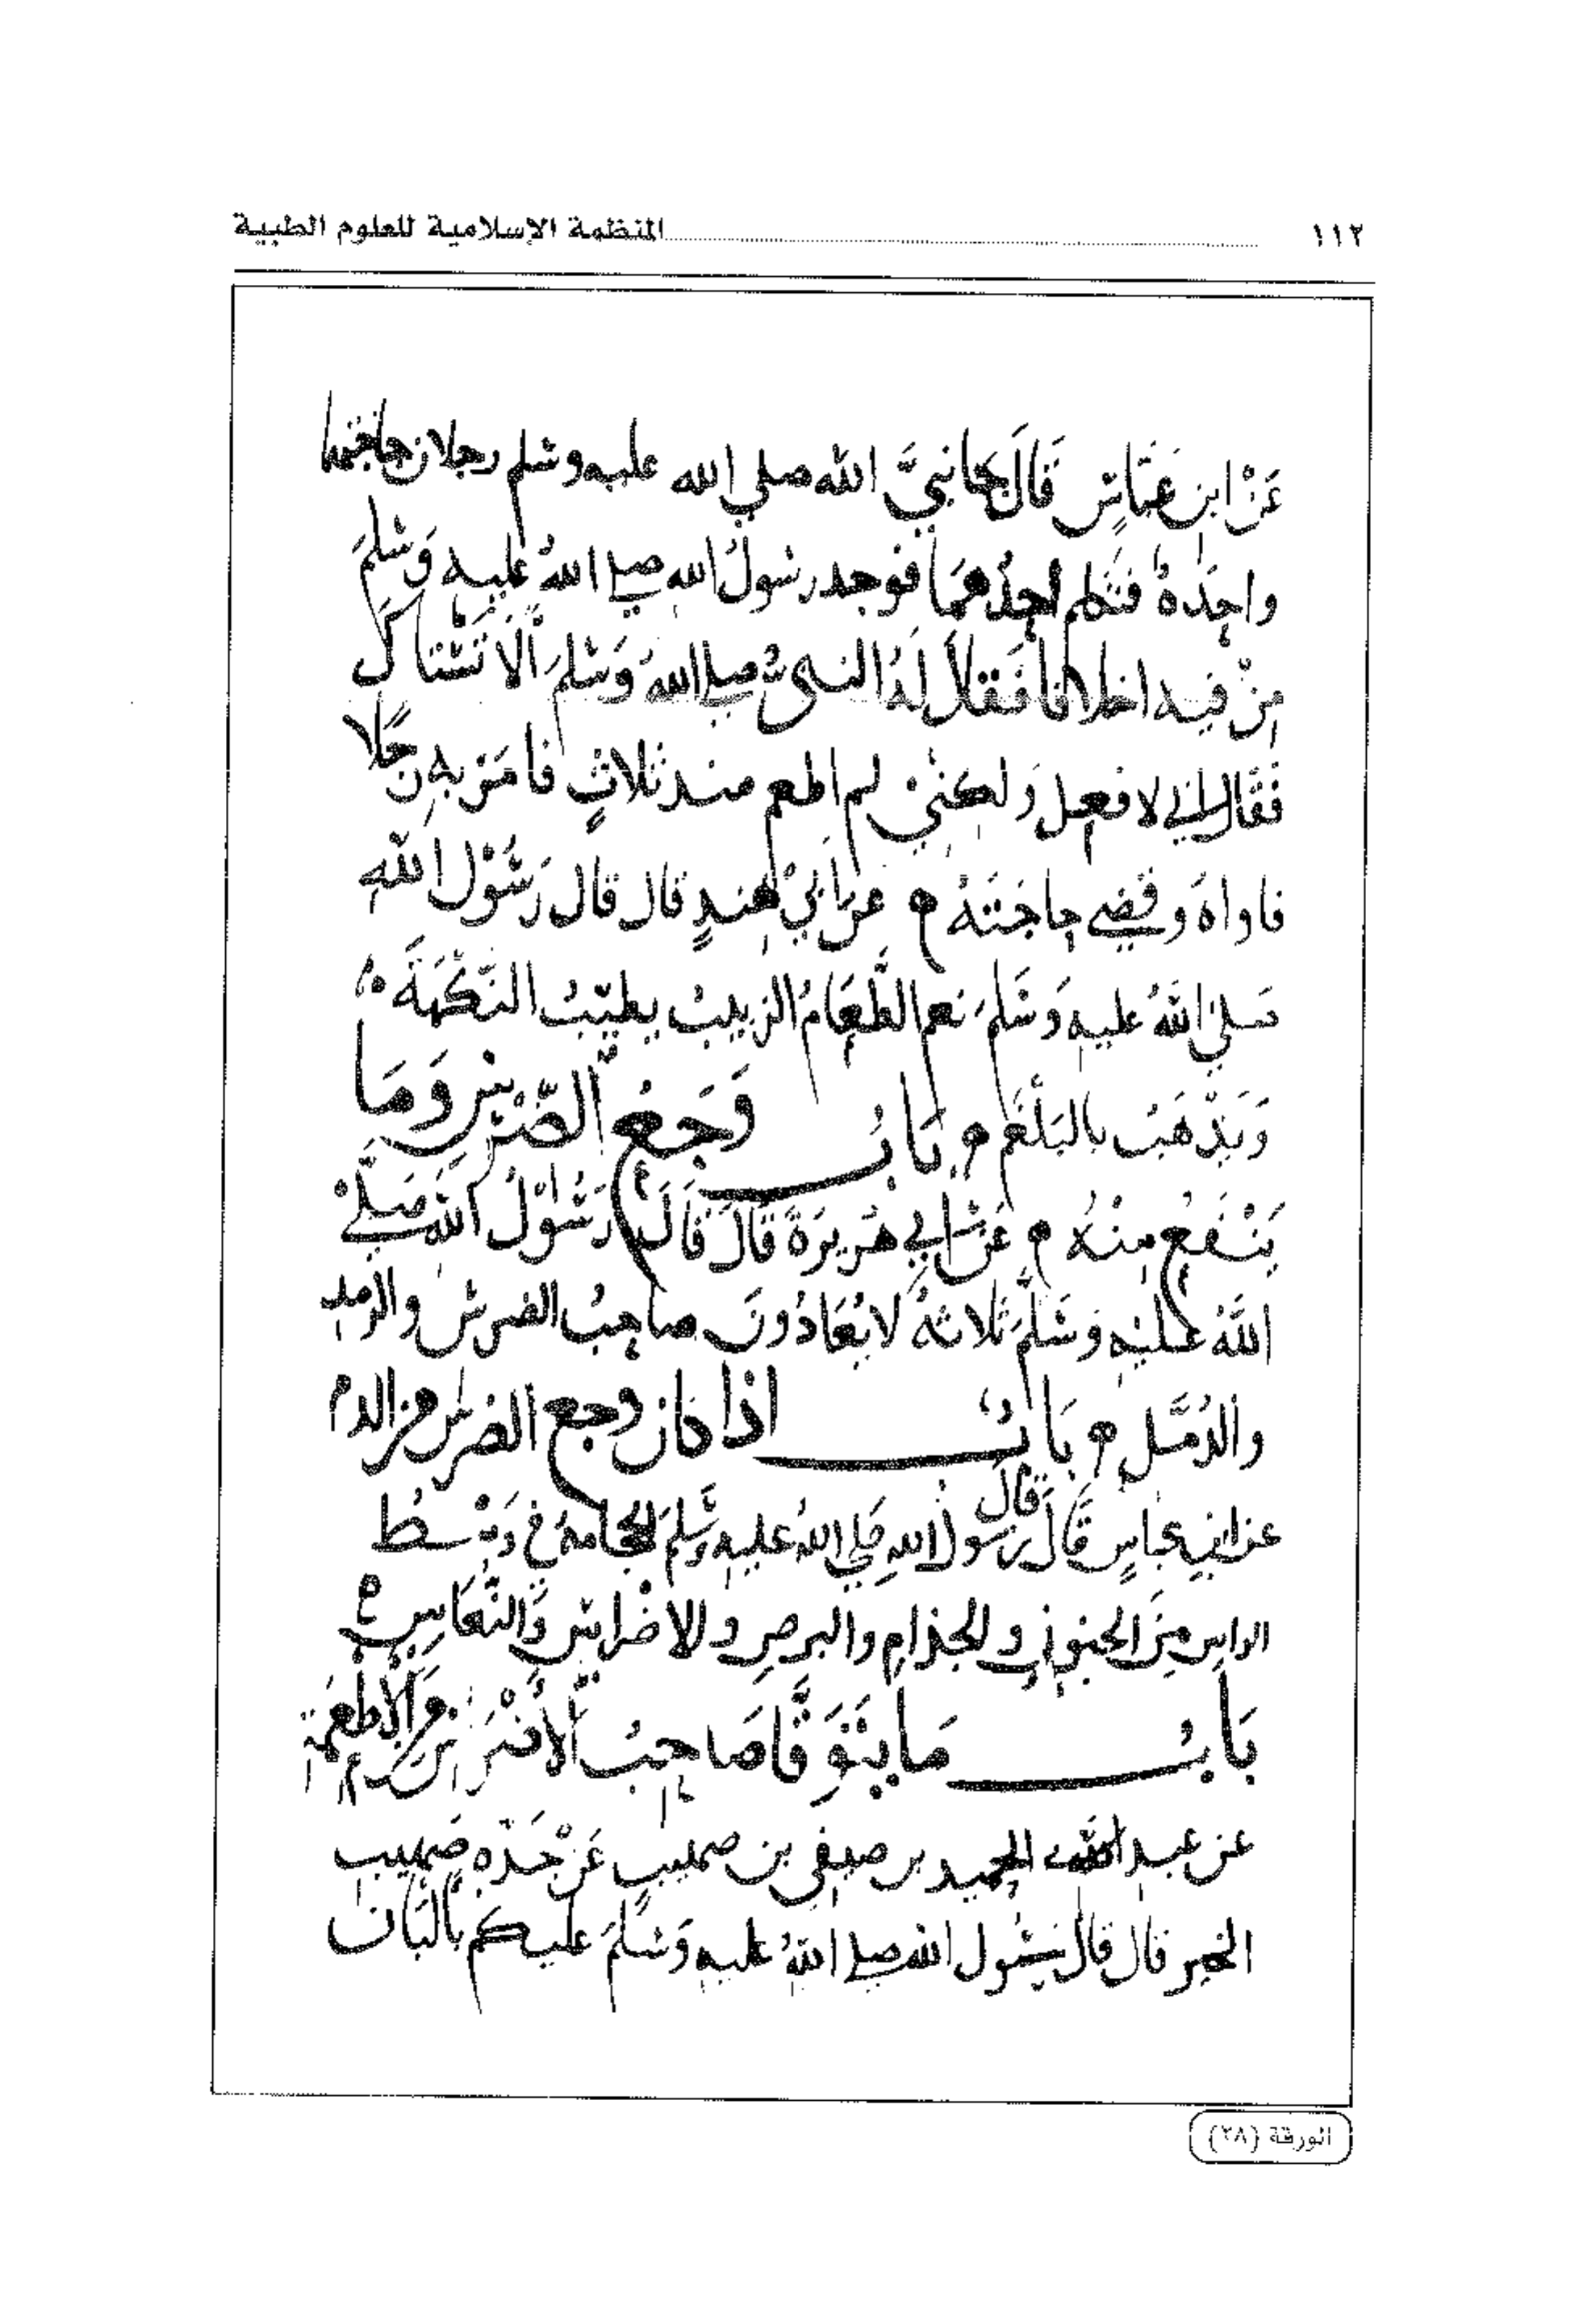 ١١٢ المنظمة الإسلامية للعلوم الطبية
عَنْ ابن عَبَّاسٍ قَالَ جا نبيَّ الله صلي الله عليه وسلم رجلان حاجتهما
واحِدَةٌ فتكلم احِدُهمَا فوجد رسُولُ الله صلى اللهُ عَليه وَسلمَ
مِنْ فيه اخلافا فَقَالَ لَهُ النبيُّ صلى اللهُ وَسلمَ أَلاَ تَسْتاكُ
فَقَال اني لافعل وَلكنِّيْ لم اطعم منذ ثلاثٍ فامَرَ به رَجُلا
فاواهُ وَقضي حاجَتَهُ م عن أبيْ هندٍ قال قال رَسُوْل الله
صَلىَّ اللَّهُ عليهِ وَسَلمَ نعم الطَّعَامُ الزبيبُ يطيّبُ النَّكْهَةَ
وَيَذْهَبُ بالبَلْغَم م بَابُ وَجَعُ الضِّرْسِ وَمَا
يَنْفَعُ مِنْهُ م عَنْ أبي هُرَيرَةَ قَالَ قَالَ رَسُوْلُ اللَّهِ صَلَّىْ
اللَّهُ عَليْهِ وَسَلَّمَ ثلاثةٌ لا يُعَادُونَ صَاحِبُ الضرس والرَّمد
والدُمَّل م بَابُ اذا كان وجع الضرس من الدم
عن ابن عباسٍ قَالَ قال رسول الله صَلي اللهُ عليهِ وسَّلمَ الحجامةُ في وَسْط
الراسِ مِنَ الجنونِ والجذامِ والبرصِ والاضْراسِ وَالنُّعَاسِ
بَابُ مَا يَتَوَقَّا صَاحِبُ الأَضْرَاسِ مِنَ الأَطعِمَة
عن عبد الحميد بن صيفي بن صهيبٍ عَنْ جَدّهِ صَهيبٍ
الخير قال قال رسُول الله صلى اللهُ عليهِ وَسَلمَ عليكم بالبَان
الورقة (٢٨)